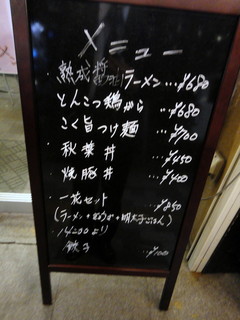 メニュー
・熟成醤油ラーメン…¥680
とんこつ鶏がら
こく旨つけ麺 …¥700
・秋葉丼 …¥450
・焼豚丼 …¥400
・一花セット …¥850
(ラーメン+ +明太子ごはん)
・14:00より
餃子 …¥100